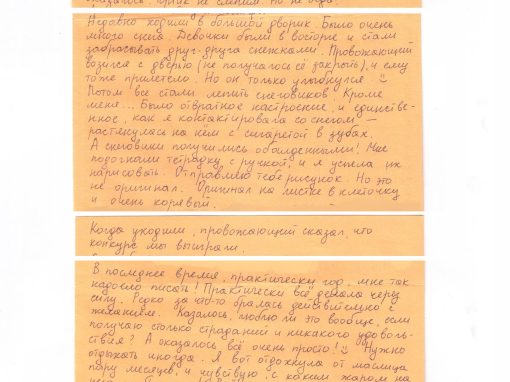 Недавно ходили в большой дворик. Было очень
много снега. Девочки были в восторге и стали
забрасывать друг-друга снежками. Провожающий
возился с дверью (не получалось её закрыть), и ему
тоже прилетело. Но он только улыбнулся
Потом все стали лепить снеговиков. Кроме
меня... Было отвратное настроение, и единстве-
нное, как я контактировала со снегом —
растянулась на нём с сигаретой в зубах.
А снеговики получились обалденными! Мне
подогнали тетрадку с ручкой, и я успела их
нарисовать. Отправляю тебе рисунок. Но это
не оригинал. Оригинал на листке в клеточку
и очень корявый.
Когда уходили, провожающий сказал, что
конкурс мы выиграли.
В последнее время, практически год, мне так
надоело писать! Практически всё делала через
силу. Редко за что-то бралась действительно с
желанием. Казалось, люблю ли это вообще, если
получаю столько страданий и никакого удоволь-
ствия? А оказалось всё очень просто! Нужно
отдыхать иногда. Я вот отдохнула от маслица
пару месяцев, и чувствую, с каким жаром на